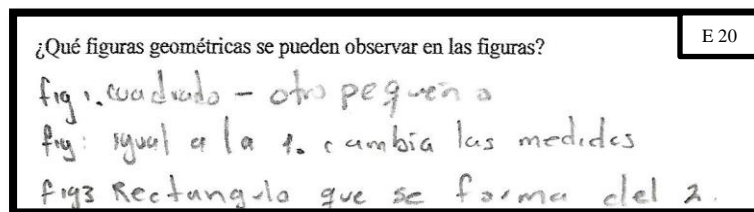 ¿Qué figuras geométricas se pueden observar en las figuras?
E 20
fig 1. cuadrado - otro pequeño
fig: igual a la 1. cambia las medidas
fig3 Rectangulo que se forma del 2.